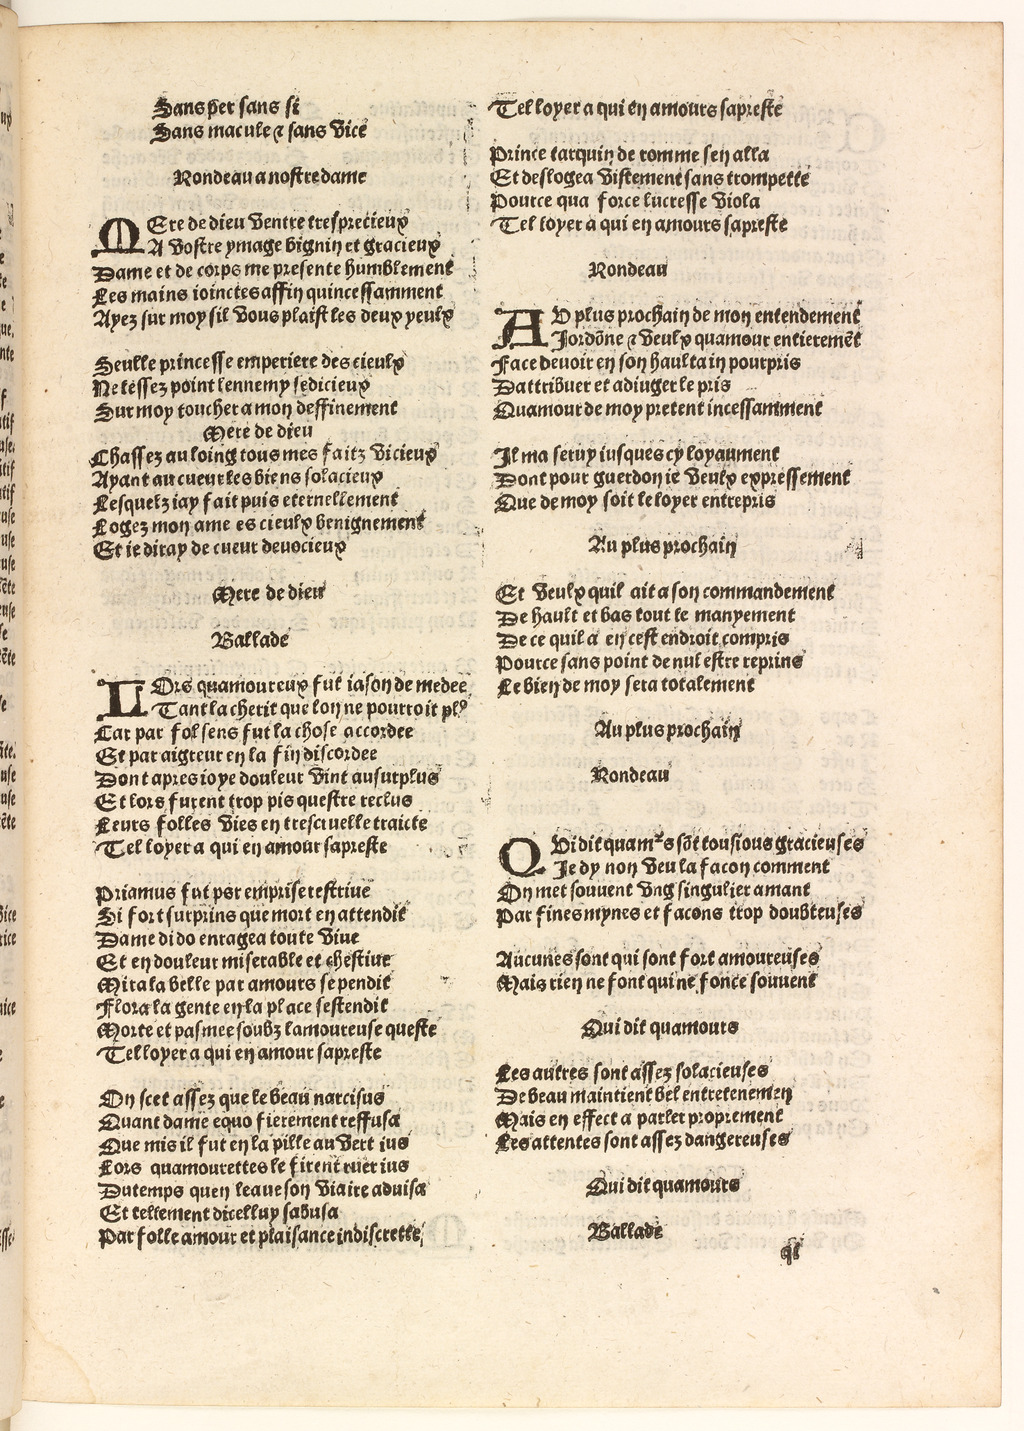 Sans per sans si
Sans macule & sans vice
Rondeau a nostre dame
MEre de dieu ventre tresprecieux
A vostre ymage bignin et gracieux
Dame et de corps me presente humblement
Les mains ioinctes affin quincessamment
Ayez sur moy sil vous plaist les deux yeulx
Seulle princesse emperiere des cieulx
Ne lessez point lennemy sedicieux
Sur moy toucher a mon deffinement
Mere de dieu
Chassez au loing tous mes faitz vicieux
Ayant au cueur les biens solacieux
Lesquelz iay fait puis eternellement
Logez mon ame es cieulx benignement
Et ie diray de cueur devocieux
Mere de dieu
Ballade
LOrs quamoureux fut iason de medee
Tant la cherit que lon ne pourroit plꝰ
Car par fol sens fut la chose accordee
Et par aigreur en la fin discordee
Dont apres ioye douleur vint au surplus
Et lors furent trop pis questre reclus
Leurs folles vies en trescruelle traicte
Tel loyer a qui en amour sapreste
Priamus fut par emprise restrive
Si fort surprins que mort en attendit
Dame dido enragea toute vive
Et en douleur miserable et chestive
Mirala belle par amours se pendit
Flora la gente en la place sestendit
Morte et pasmee soubz lamoureuse queste
Tel loyer a qui en amour sapreste
On scet assez que le beau narcisus
Quant dame equo fierement reffusa
Que mis il fut en la pille au vert ius
Lors quamourettes le firent ruer ius
Du temps quen leaue son viaire advisa
Et tellement dicelluy sabusa
Par folle amour et plaisance indiscrette
Tel loyer a qui en amours sapreste
Prince tarquin de romme sen alla
Et deslogea vistement sans trompette
Pource qua force lucresse viola
Tel loyer a qui en amours sapreste
Rondeau
AV plus prochain de mon entendement
Jordōne & veulx quamour entieremēt
Face devoir en son haultain pourpris
Dattribuer et adiuger le pris
Quamour de moy pretent incessamment
Il ma servy iusques cy loyaument
Dont pour guerdon ie veulx expressement
Que de moy soit le loyer entrepris
Au plus prochain
Et veulx quil ait a son commandement
De hault et bas tout le manyement
De ce quil a en cest endroit compris
Pource sans point de nul estre reprins
Le bien de moy sera totalement
Au plus prochain
Rondeau
QVi dit quamrs sōt tousious gracieuses
Je dy non veu la facon comment
On met souvent ung singulier amant
Par fines mynes et facons trop doubteuses
Aucunes sont qui sont fort amoureuses
Mais rien ne font qui ne fonce souvent
Qui dit quamours
Les autres sont assez solacieuses
De beau maintient bel entretenemen
Mais en effect a parler proprement
Les attentes sont assez dangereuses
Qui dit quamours
Ballade